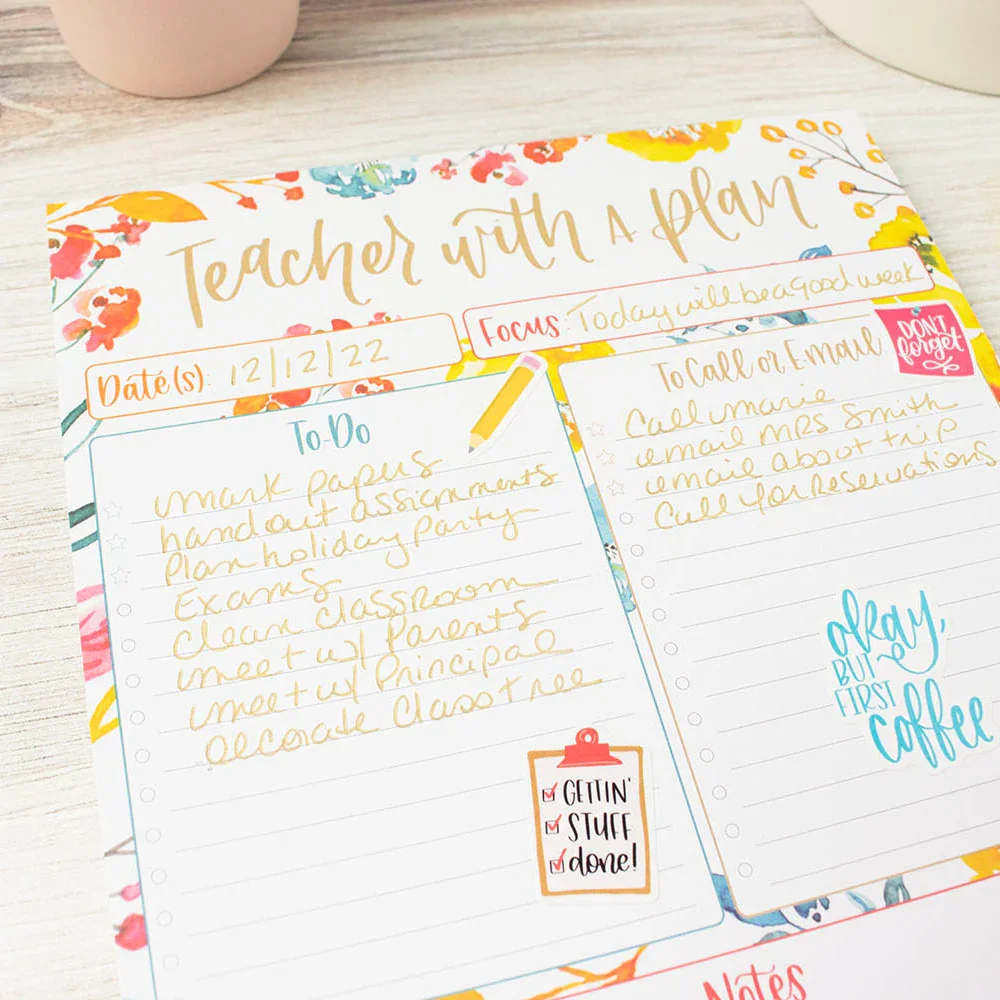 Teacher with A plan
Date(s): 12/12/22
Focus: Today will be a good week
To-Do
mark papers
handout assignments
Plan holiday party
Exams
Clean Classroom
meet w/ Parents
meet w/ Principal
Decorate Class tree
To Call or E-mail
DON'T
forget
Call marie
email MRS Smith
email about trip
Call for Reservations
okay,
BUT
FIRST
coffee
GETTIN'
STUFF
done!
Notes